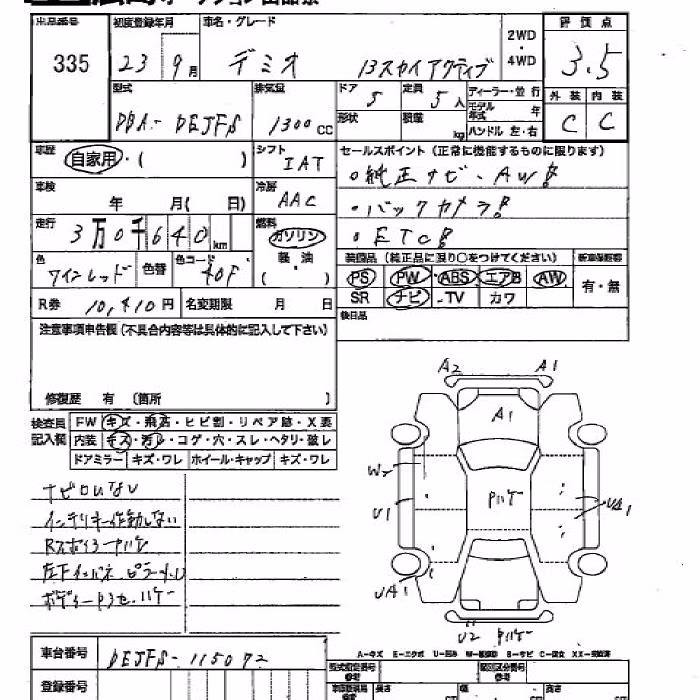 出品番号 初度登録年月 車名・グレード 2WD・4WD 評価点
335 23 9月 デミオ 13スカイアクティブ 3.5
型式 排気量 ドア 定員 ディーラー・並行 外装 内装
DBA- DEJFS 1300cc 5 5人 モデル年式 年 C C
形状 積載 kg ハンドル 左・右
車歴 自家用・( ) シフト IAT セールスポイント (正常に機能するものに限ります)
車検 年 月(日) 冷房 AAC ・純正ナビ・AW
走行 3万0千640km 燃料 ガソリン 軽油 ( ・ ) ・バックカメラ
・ETC
色 ワインレッド 色替 色コード 40F 装備品 (純正品に限り○をつけてください) 新車保証書
PS PW ABS エアB AW 有・無
R券 10,410円 名変期限 月 日 SR ナビ TV カワ
注意事項申告欄(不具合内容等は具体的に記入して下さい) 後日品
修復歴 有 (箇所 )
検査員記入欄 FW キズ・飛石・ヒビ割・リペア跡・X要
内装 キズ・汚れ・コゲ・穴・スレ・ヘタリ・破レ
ドアミラー キズ・ワレ ホイール・キャップ キズ・ワレ
A2 A1
A1
W2
U1 Pハゲ UA1
UA1
U2 Pハゲ
ナビロムなし
インテリキー作動しない
RスポイラーPハゲ
車台番号 DEJFS-115072
A-キズ E-エクボ U-凹み
登録番号 型式指定番号 類別区分番号
長さ 幅 高さ